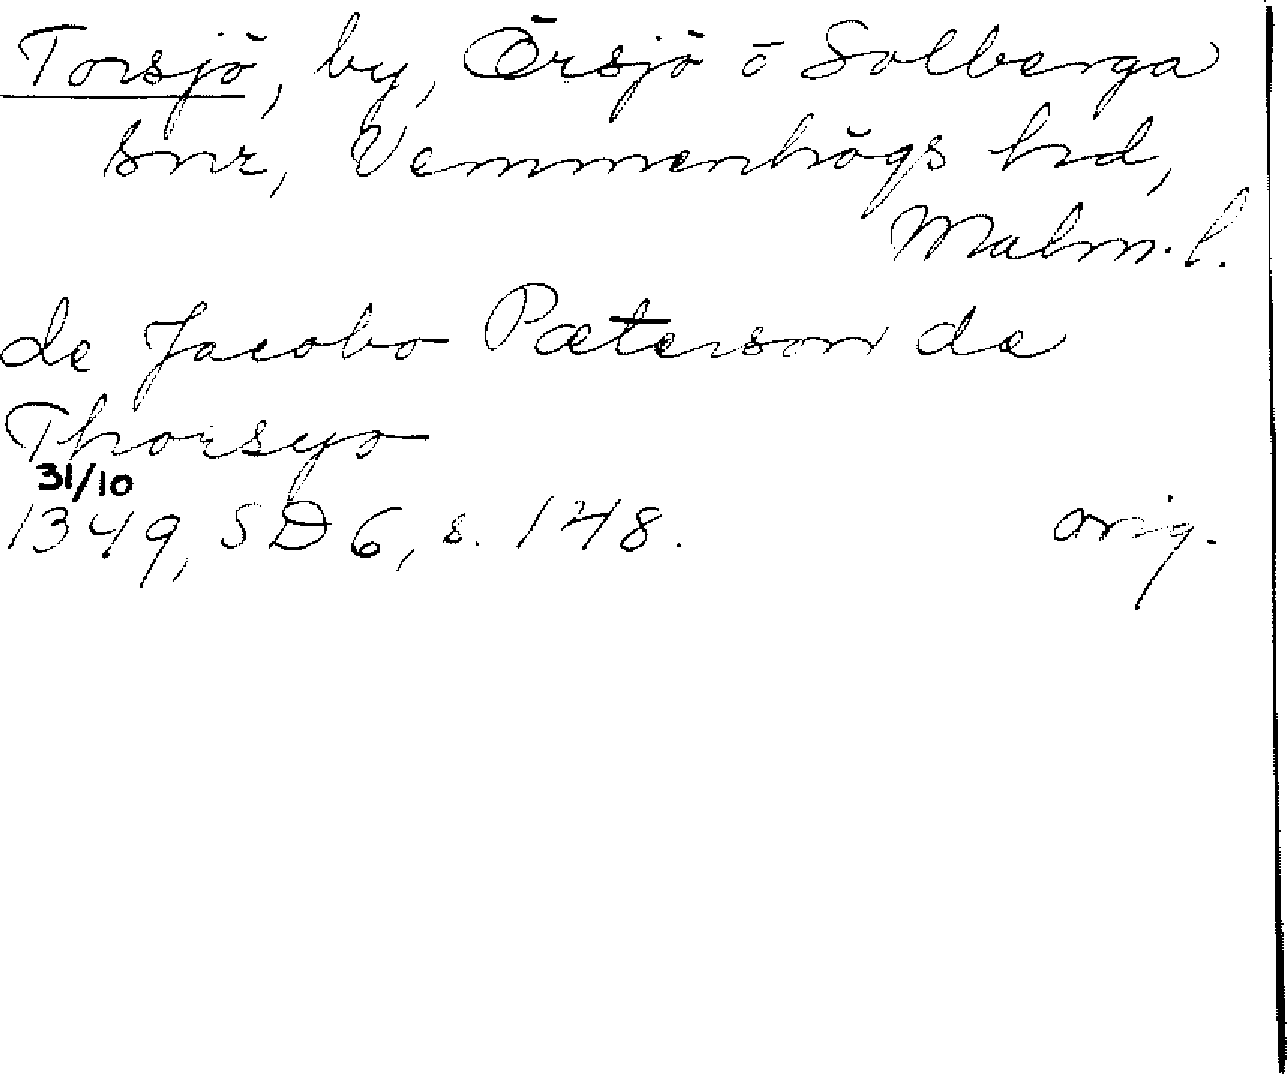 Torsjö, by, Örsjö o Solberga
snr, Vemmenhögs hd,
Malm. l.
de Jacobo Pæterson de
Thorsyo
31/10
1349, SD 6, s. 148. orig.